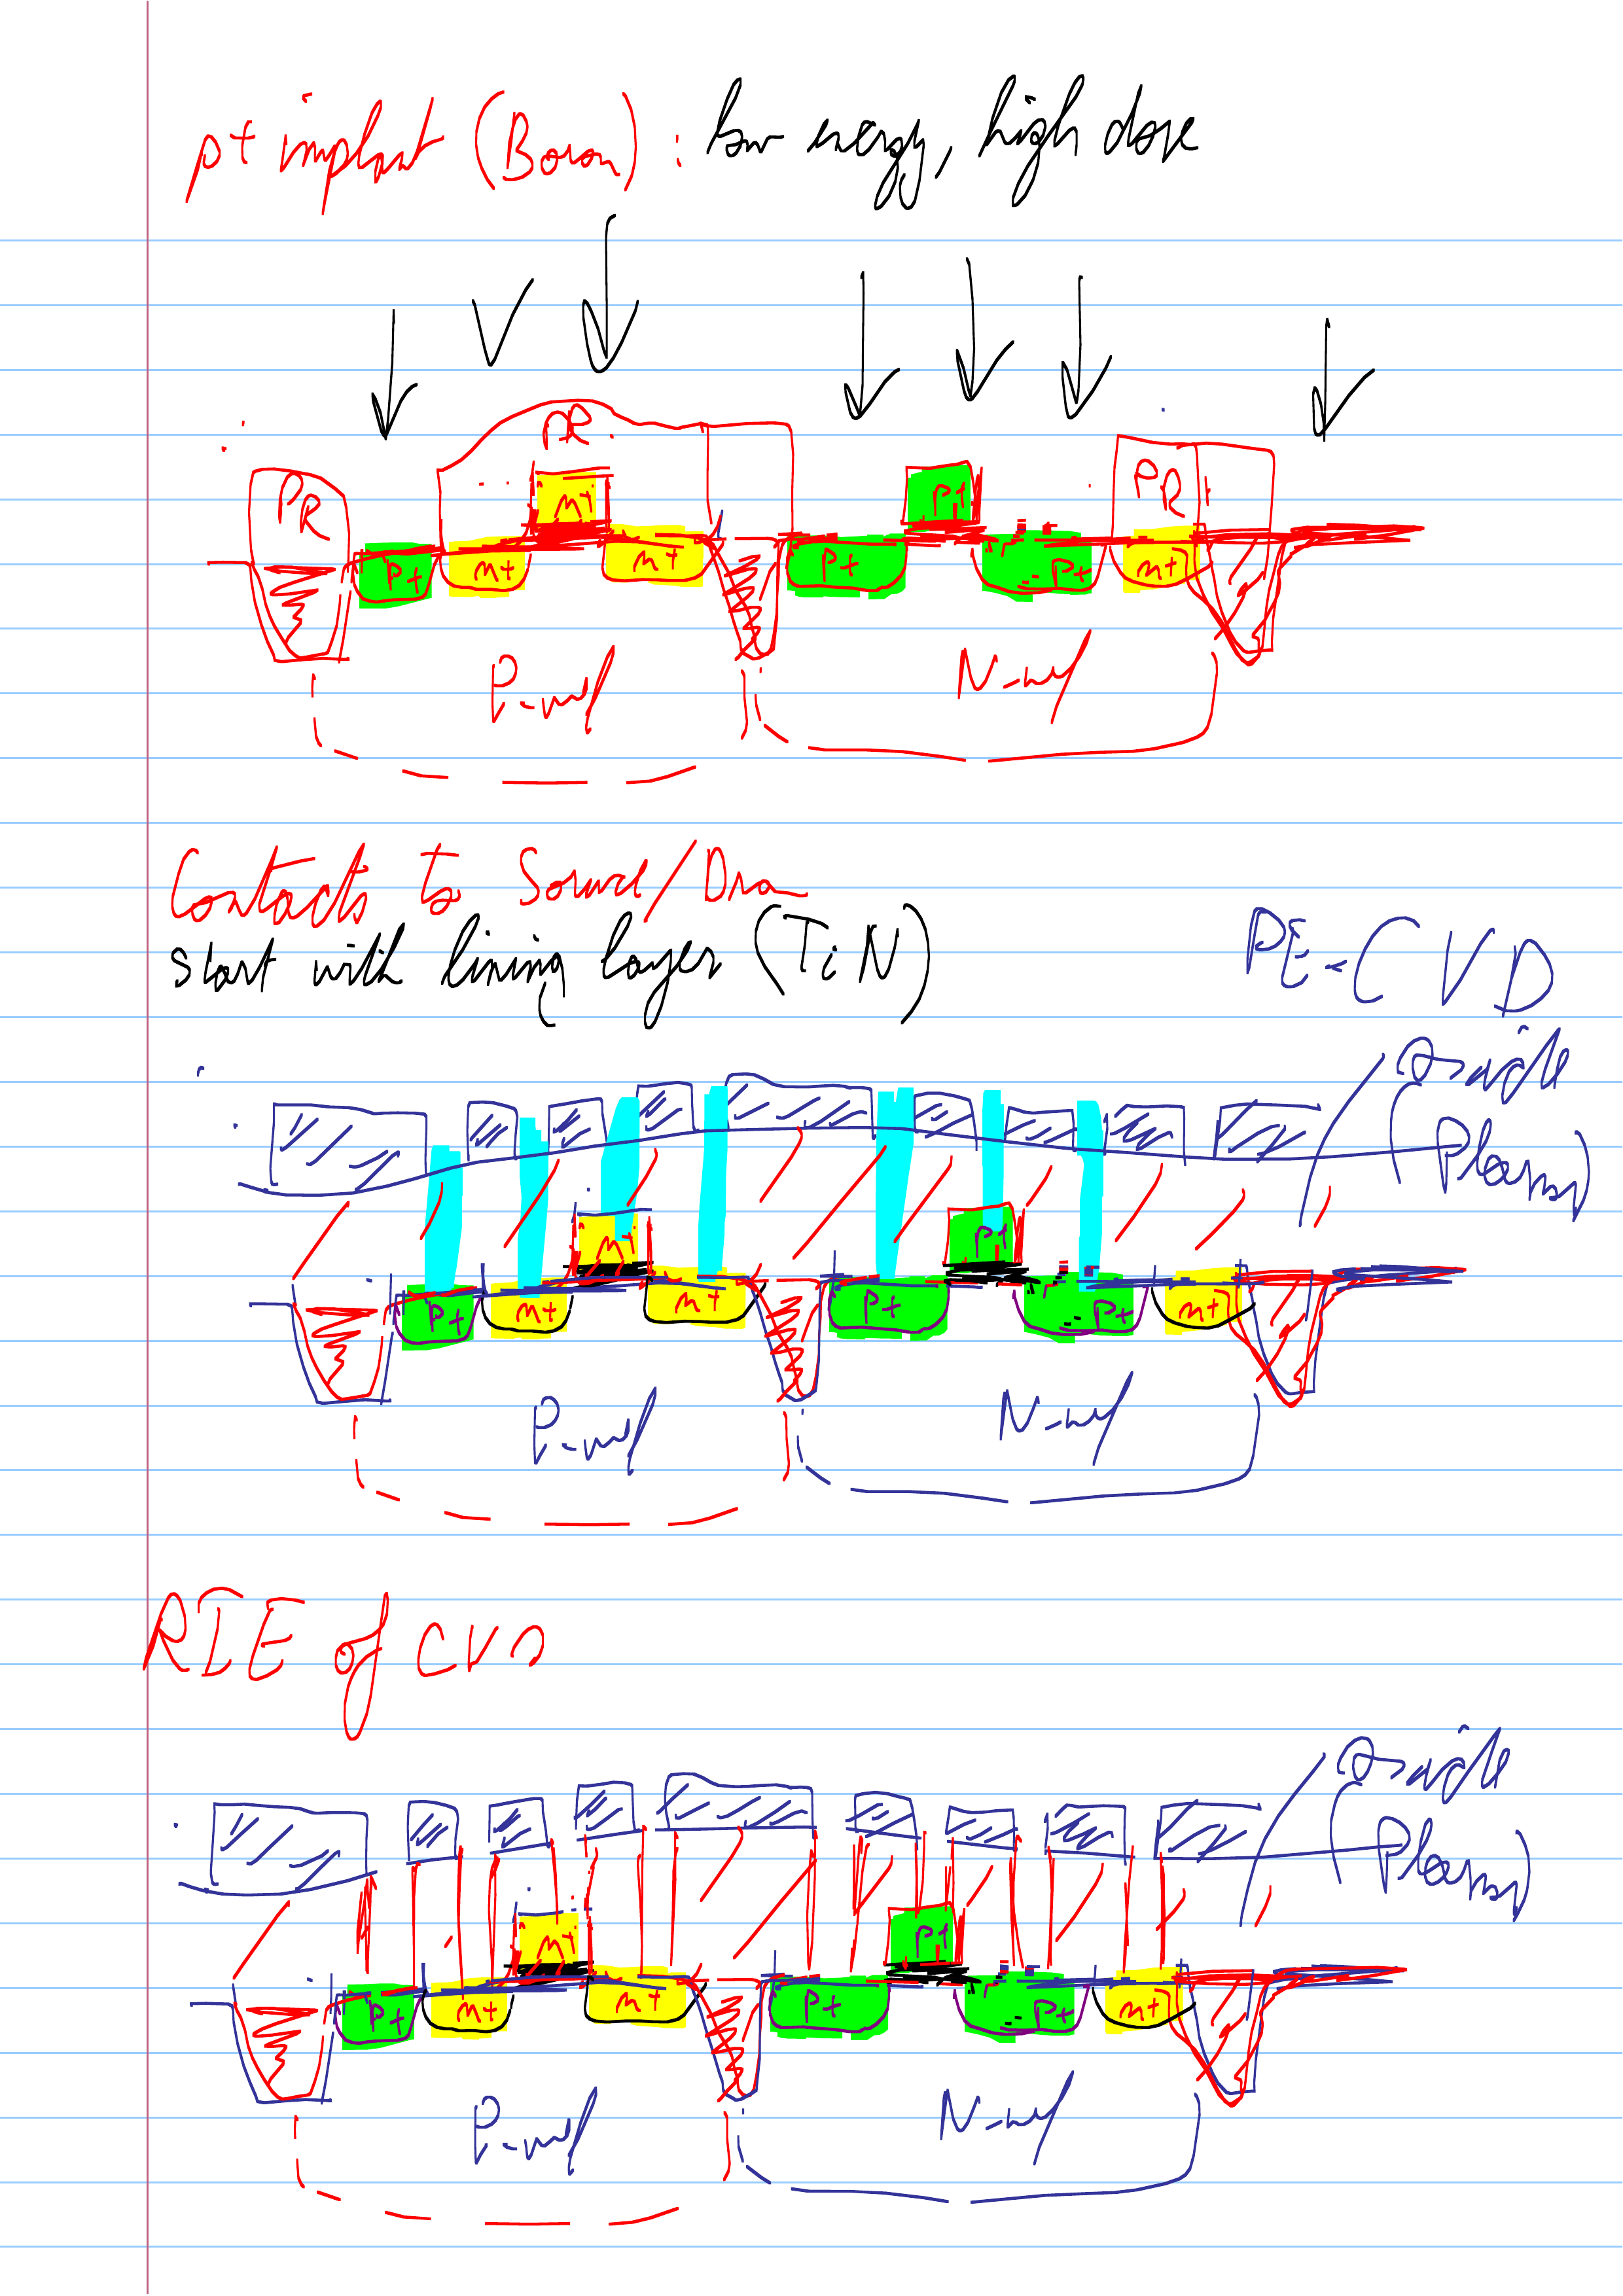 p+ implant (Boron) : low energy, high dose
PR
PR
PR
n+
p+
P+
n+
n+
P+
P+
n+
P-well
N-well
Contacts to Source/Dra
start with lining layer (TiN)
PE-CVD
Oxide
(Plasma)
n+
p+
P+
n+
n+
P+
P+
n+
P-well
N-well
RIE of CVD
Oxide
(Plasma)
n+
p+
P+
n+
n+
P+
P+
n+
P-well
N-well